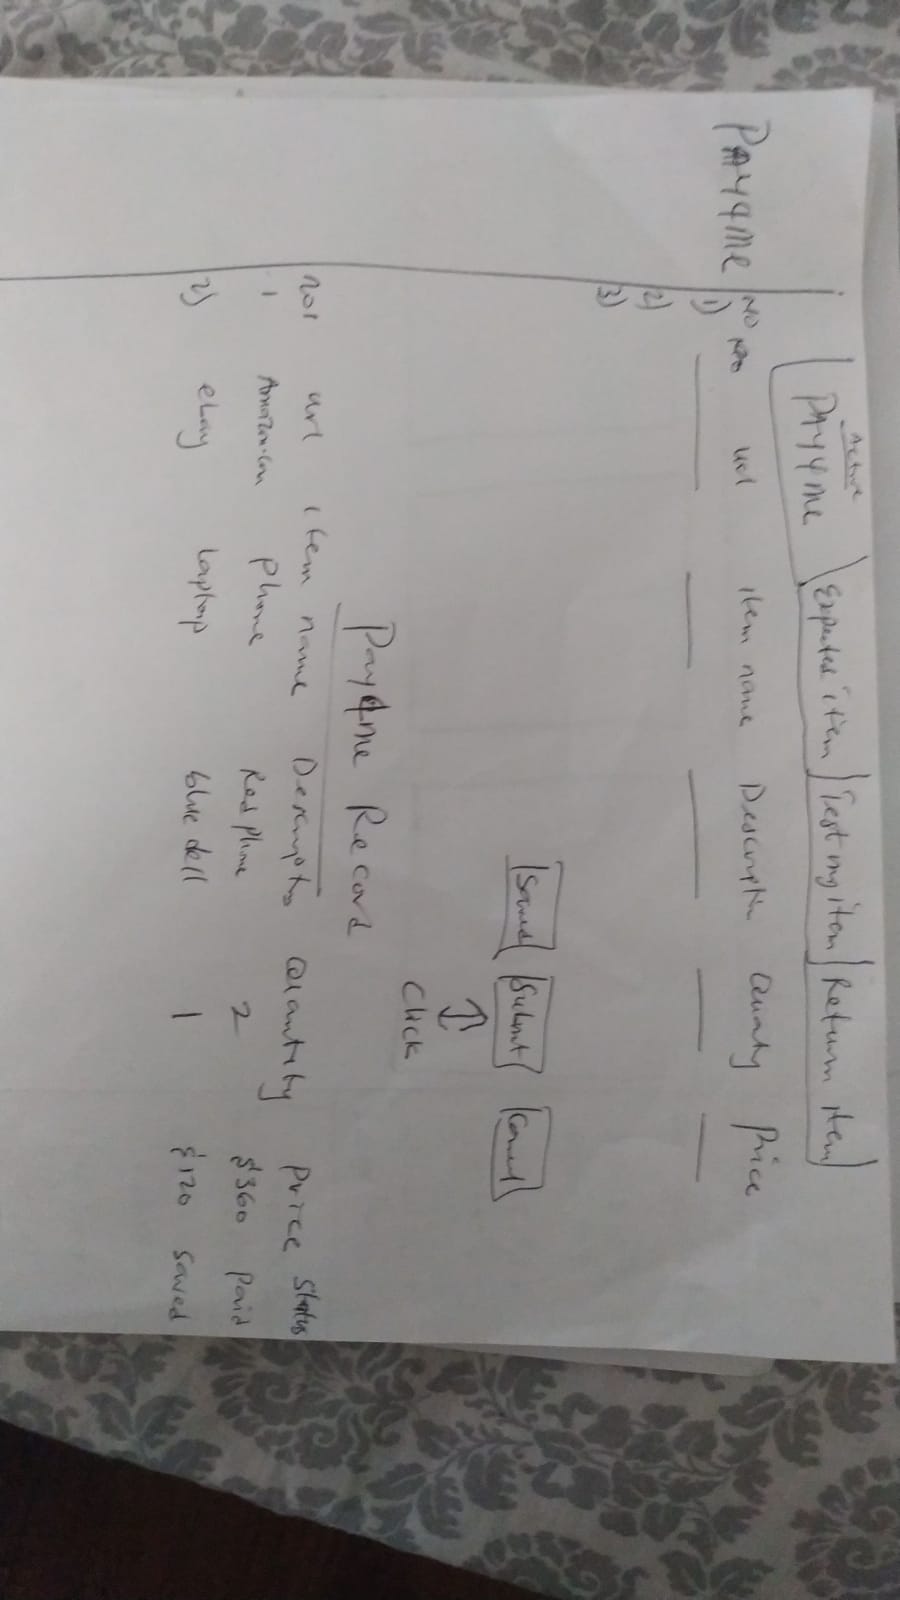 PAY4me
Active
PAY4me Expected item Test my item Return item
No url item name Description Quaty Price
1)
2)
3)
Saved Submt Cancel
Click
Pay4me Record
url item name Quantity price status
1 Amazon.com phone Red phone 2 $360 paid
2) ebay laptop blue dell 1 $120 saved